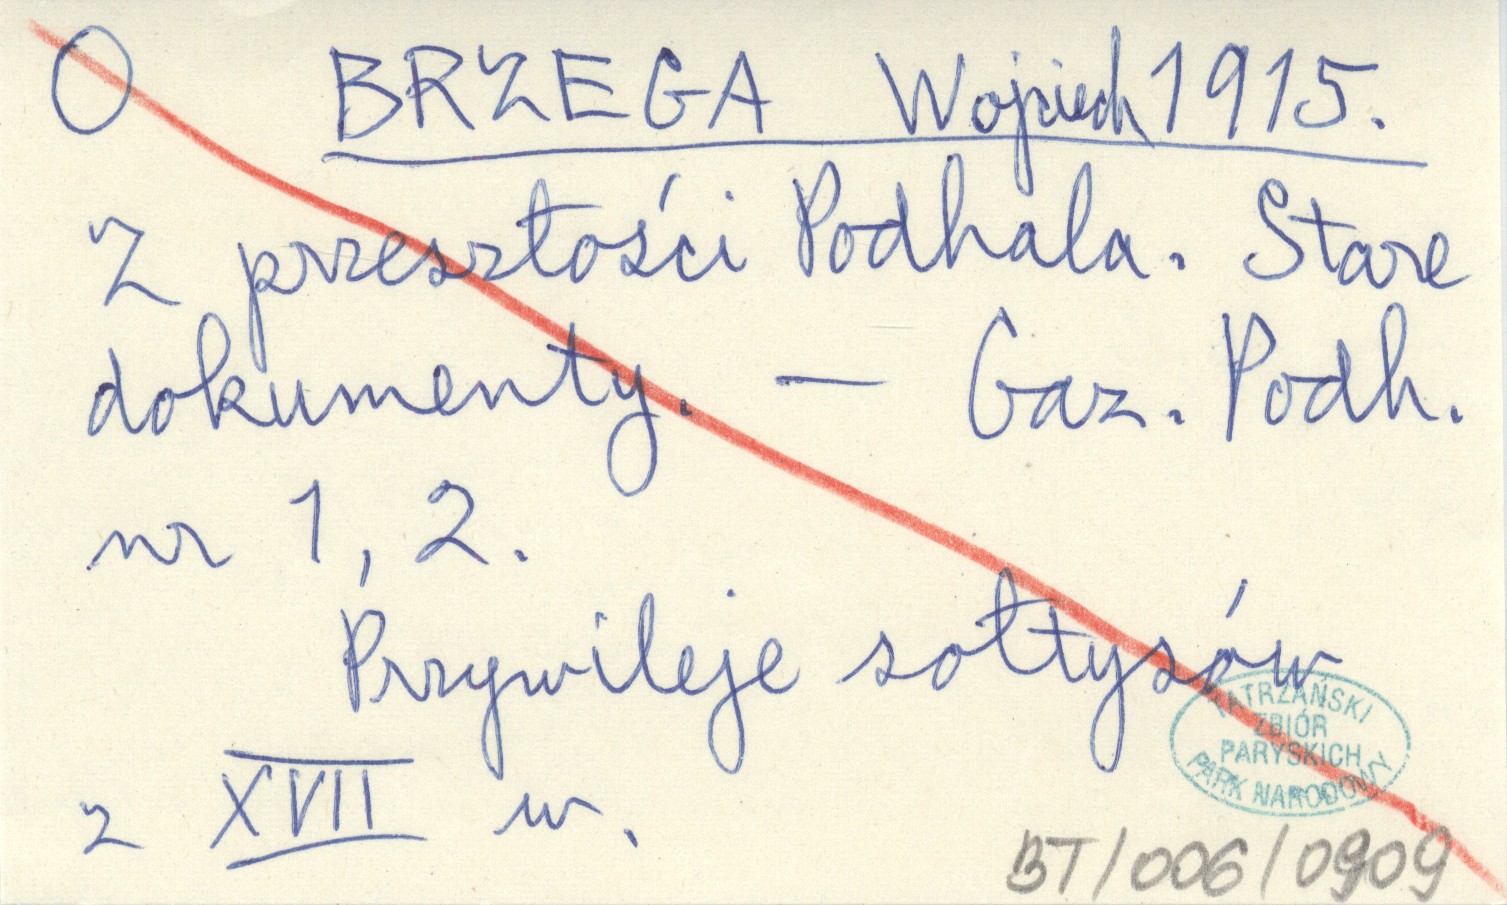 O BRZEGA Wojciech 1915.
Z przeszłości Podhala. Stare
dokumenty. — Gaz. Podh.
nr 1, 2.
Przywileje sołtysów
z XVII w.
TATRZAŃSKI
ZBIÓR
PARYSKICH
PARK NARODOWY
BT/006/0909